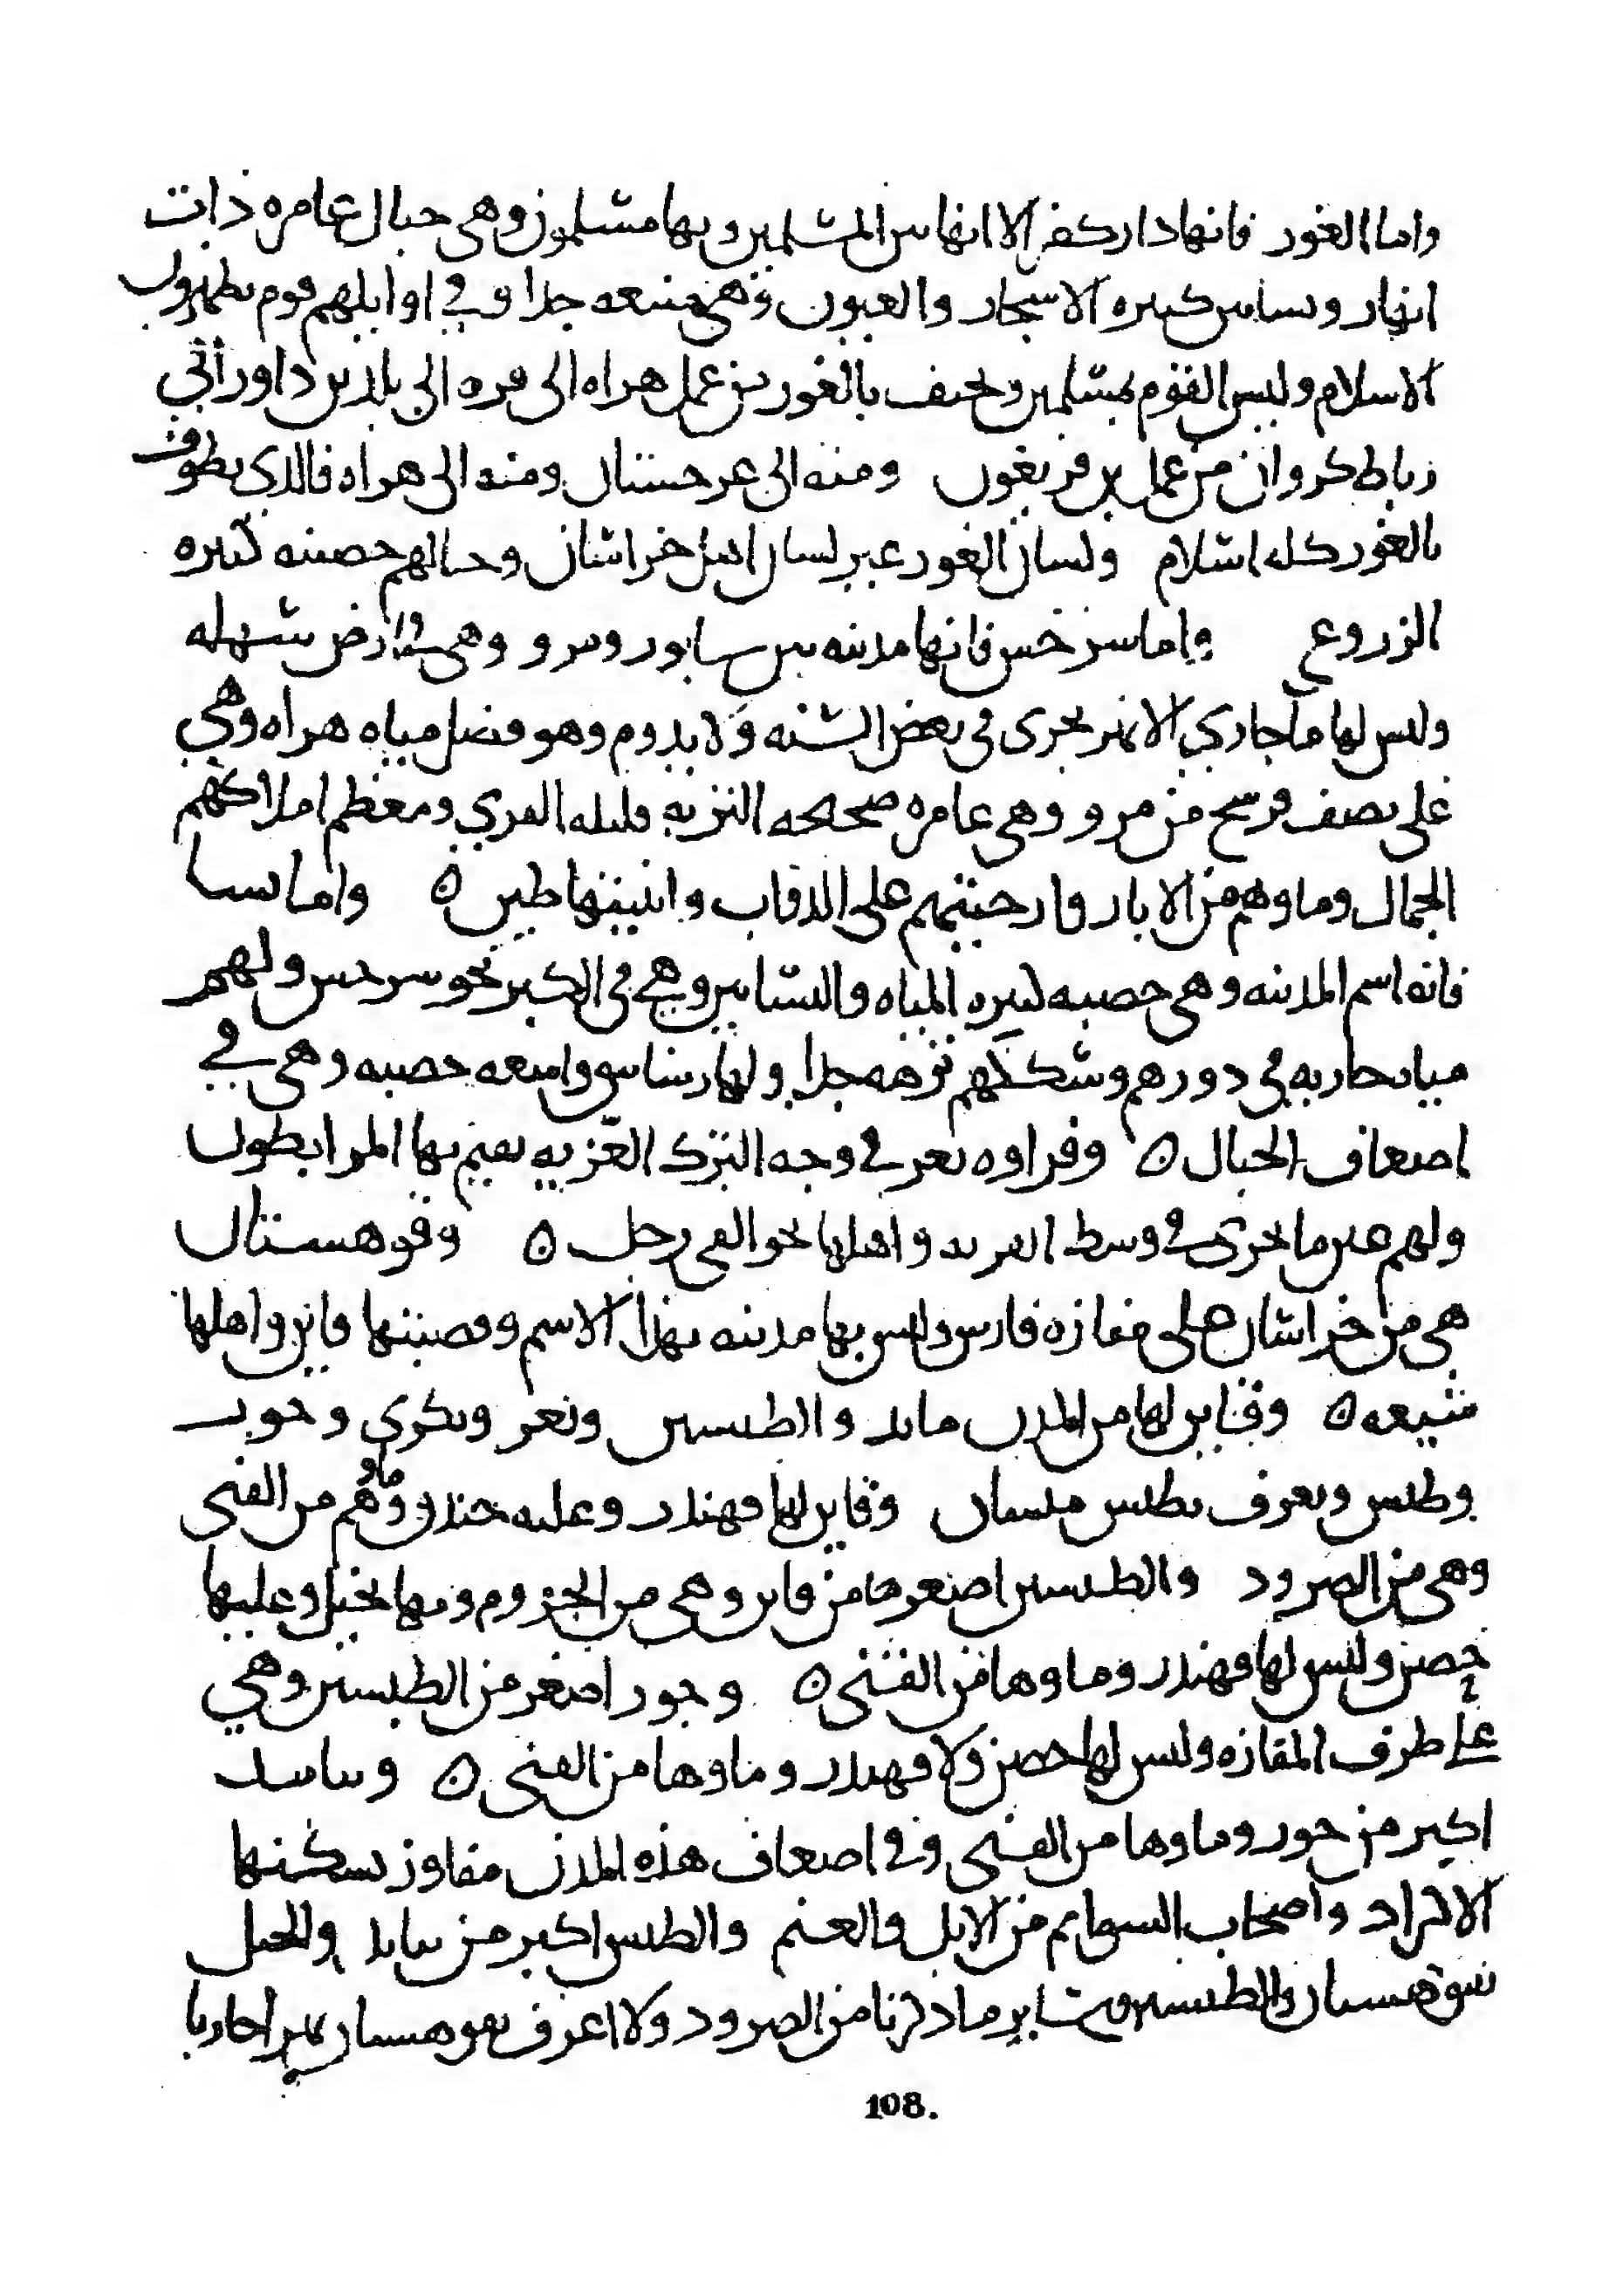 واما الغور فانها دار كفر الا انها بين المسلمين وبها مسلمون وهي جبال عامره ذات
انهار وبساتين كثيره الاشجار والعيون وهي منيعه جدا وفي اوايلهم قوم يظهرون
الاسلام وليس القوم بمسلمين ويحتف بالغور من عمل هراه الى فره الى بلدين داور الى
رباط كروان من عمل بن فريغون ومنه الى غرجستان ومنه الى هراه فالذي يطوف
بالغور كله اسلام ولسان الغور غير لسان اهل خراسان وجبالهم خصبه كثيره
الزروع واما سرخس فانها مدينه بين سابور ومرو وهي في ارض سهله
وليس لها ما جاري الا نهر يجرى في بعض السنه ولا يدوم وهو فضل مياه هراه وهي
على نصف فرسخ من مرو وهي عامره صحيحه التربه قليله القري ومعظم املاكهم
الجمال وماوهم من الابار وارحيتهم على الدواب وابنيتها طين ٥ واما نسا
فانه اسم المدينه وهي خصبه كثيره المياه والبساتين وهي في الكبر نحو سرخس ولهم
مياه جاريه في دورهم وسككهم نزهه جدا ولها رساتيق واسعه خصبه وهي في
اضعاف الجبال ٥ وفراوه ثغر في وجه الترك الغزيه يقيم بها المرابطون
ولهم عين ما تجرى في وسط القريه واهلها نحو الفي رجل ٥ وقوهستان
هي من خراسان على مفازه فارس وليس بها مدينه بهذا الاسم وقصبتها قاين واهلها
شيعه ٥ وقاين لها من المدن والطبسين وتعر وبكري وخور
وطبس ويعرف بطبس وقاين لها قهندر وعليه خندق وماوهم من القنى
وهي من الصرود والطبسين اصغر من قاين وهي من الجروم وبها نخيل وعليها
حصن وليس لها قهندر وماوها من القنى ٥ وخور اصغر من الطبسين وهي
على طرف المفازه وليس لها حصن ولا قهندر وماوها من القنى ٥
اكبر من خور وماوها من القنى وفي اضعاف هذه المدن مفاوز يسكنها
الاكراد واصحاب السوايم من الابل والغنم والطبس اكبر من ينابد والنخيل
بقوهستان والطبسين وساير ما ذكرنا من الصرود ولا اعرف بقوهستان نهرا جاريا
108.